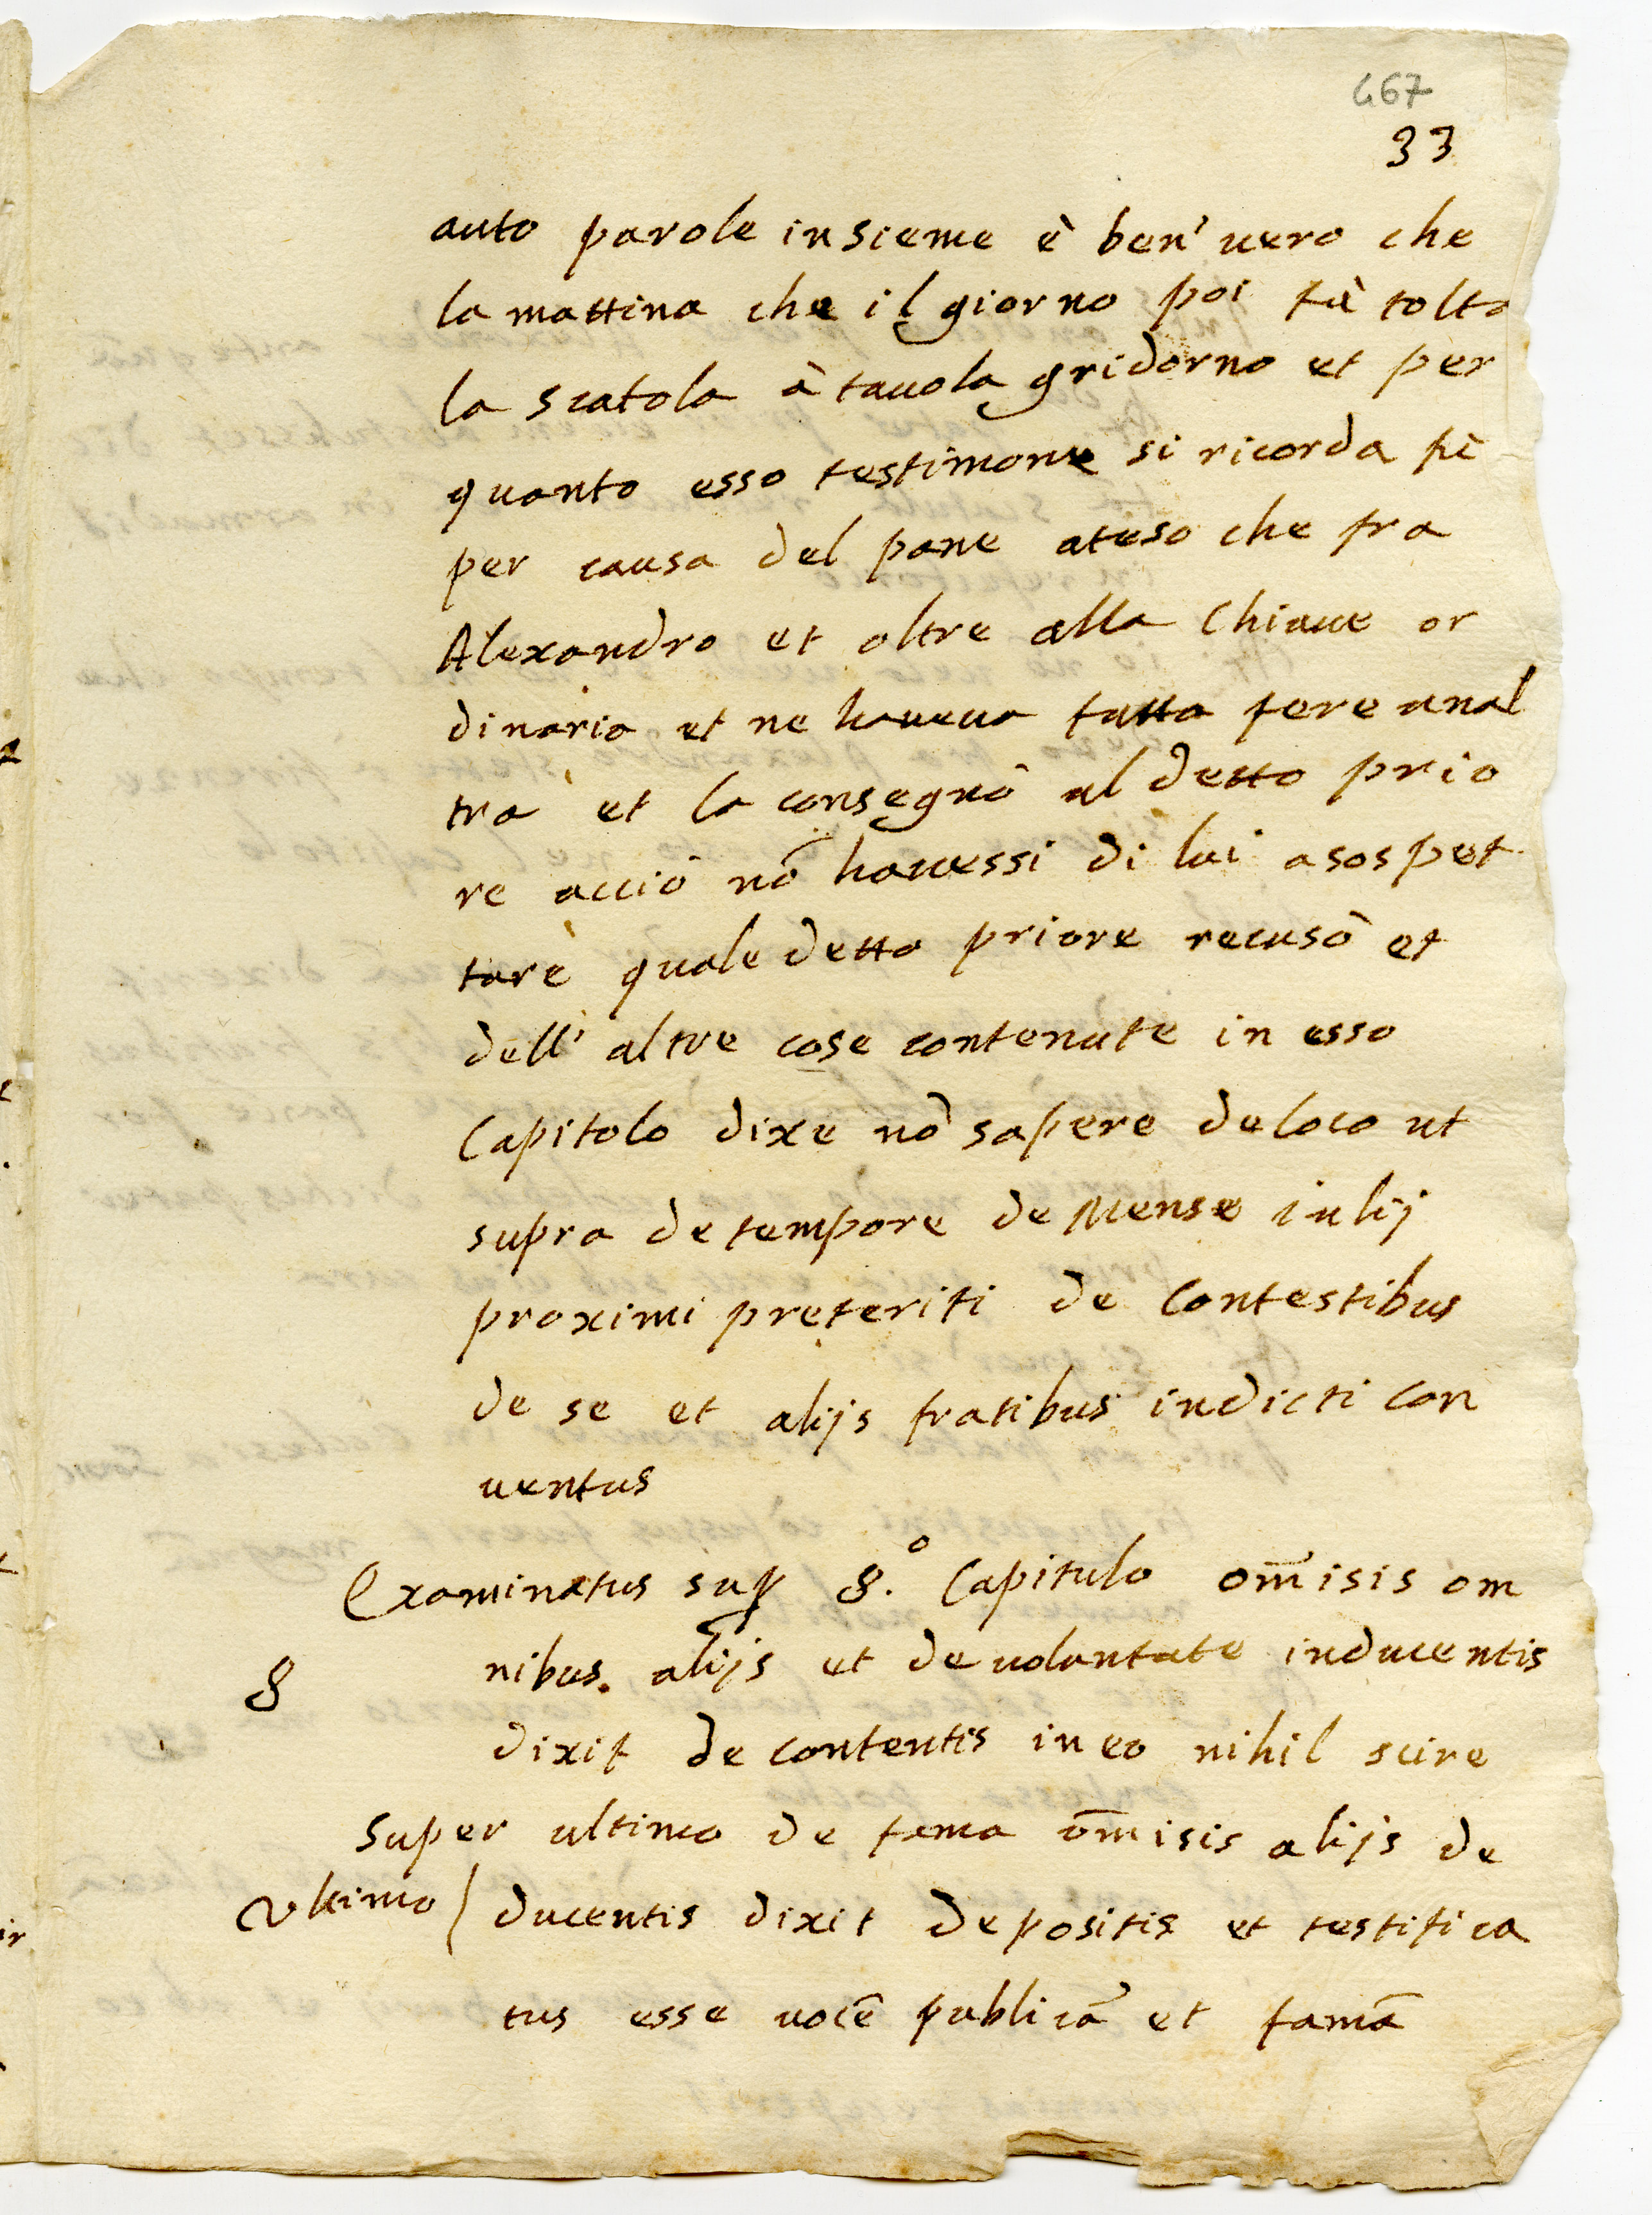 467
33
auto parole insieme è ben' uero che
la mattina che il giorno poi fù tolta
la scatola à tauola gridorno et per
quanto esso testimone si ricorda fù
per causa del pane ateso che fra
Alexandro et oltre alla Chiaue or
dinaria et ne haueua fatta fere unal
tra et la consegnò al detto prio
re acciò nõ hauessi di lui a sospet
tare quale detto priore recusò et
dell' altre cose contenute in esso
Capitolo dixe nõ sapere de loco ut
supra de tempore de Mense iulij
proximi preteriti de Contestibus
de se et alijs fratibus in dicti con
uentus
Examinatus sup 8.º Capitulo om̃isis om
nibus. alijs et de uoluntate inducentis
8
dixit de contentis in eo nihil scire
super ultimo de fama om̃isis alijs de
Vltimo / ducentis dixit depositis et testifica
tus esse uocẽ publicã et famã